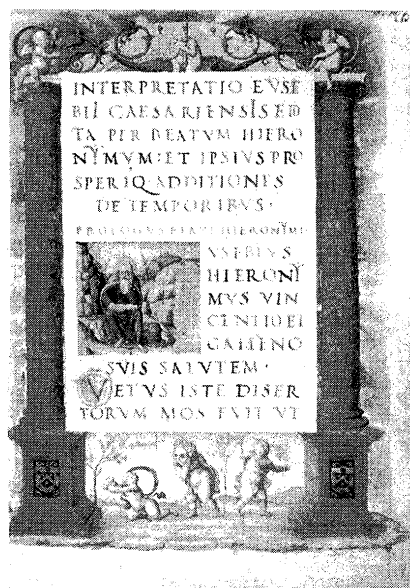 INTERPRETATIO EVSE
BII CAESARIENSIS EDI
TA PER BEATVM HIERO
NYMVM: ET IPSIVS PRO
SPERIQ· ADDITIONES
DE TEMPORIBVS·
PROLOGVS BEATI HIERONYMI
VSEBIVS
HIERONY
MVS VIN
CENTIO ET
GALIENO
SVIS SALVTEM·
VETVS ISTE DISER
TORVM MOS FVIT VT